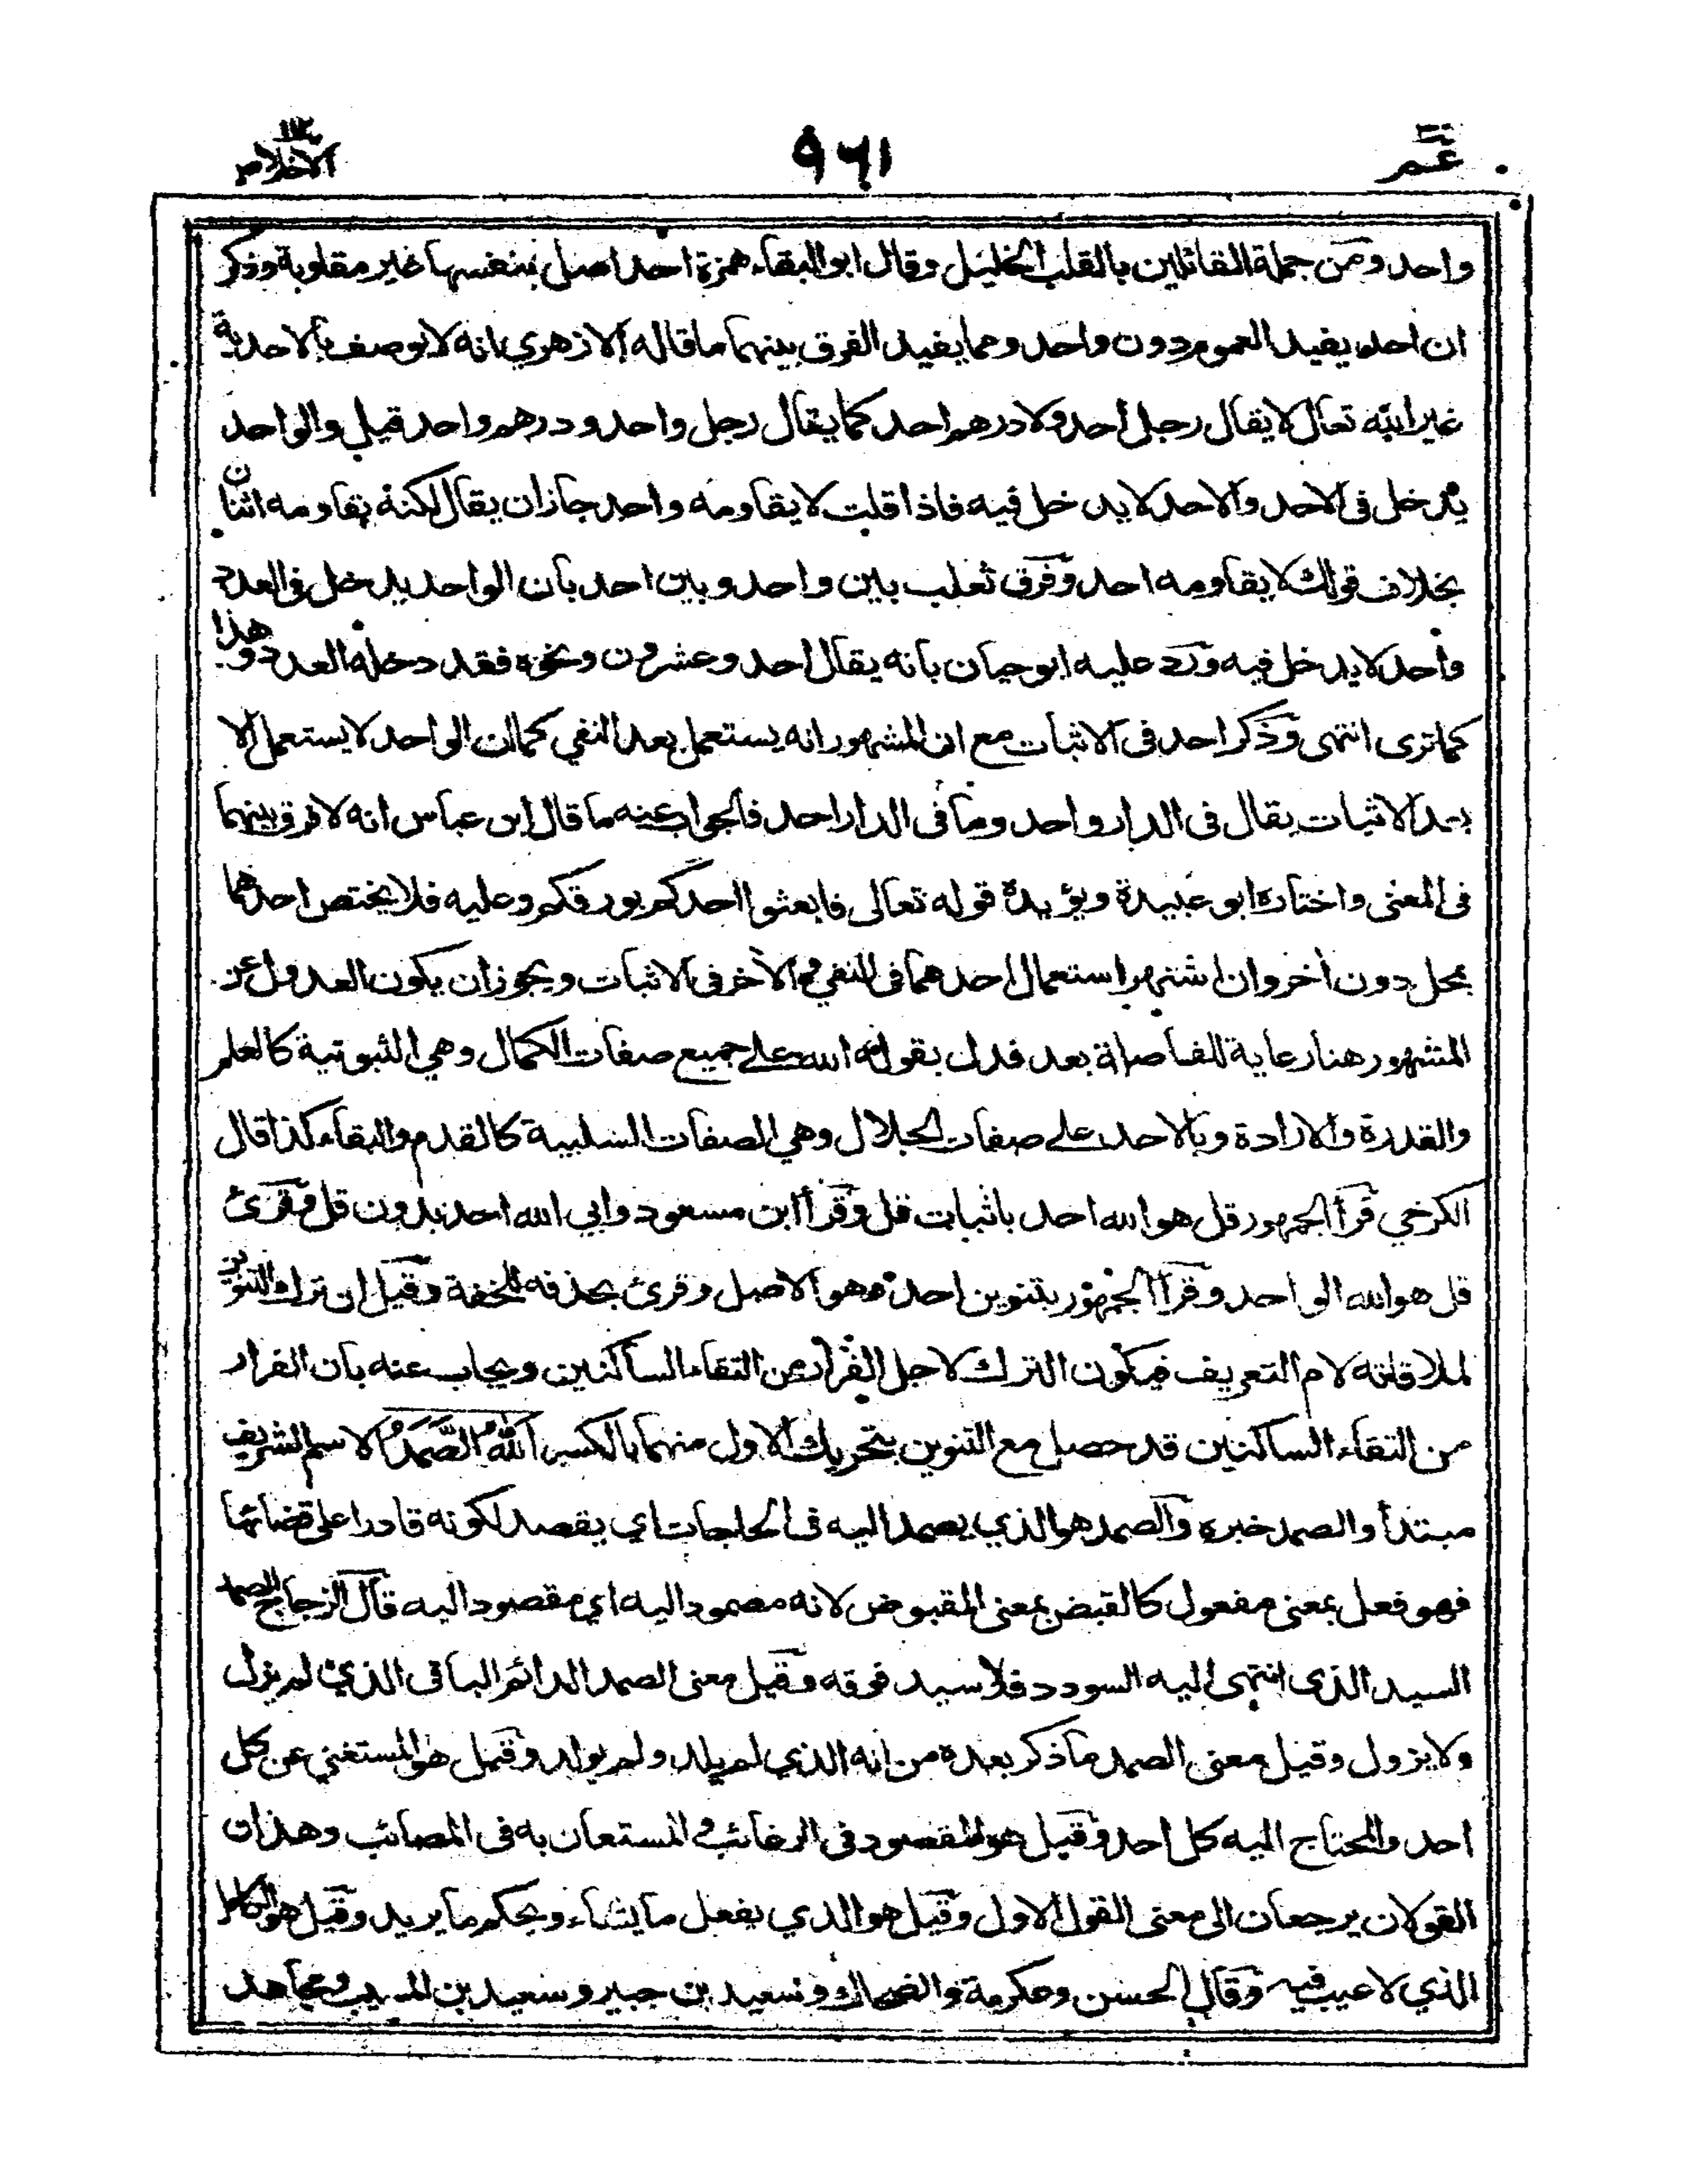 عم
٩٦١
١١٢
الاخلاص
واحد ومن جملة القائلين بالقلب الخليل وقال ابو البقاء همزة احد اصل بنفسها غير مقلوبة وذكر
ان احد يفيد العموم دون واحد ومما يفيد الفرق بينهما ما قاله الازهري بانه لا يوصف بالاحدية
غير الله تعالى لا يقال رجل أحد ولا درهم احد كما يقال رجل واحد ودرهم واحد قيل والواحد
يدخل فى الاحد والاحد لا يدخل فيه فاذا قلت لا يقاومه واحد جاز ان يقال لكنه يقاومه اثنان
بخلاف قولك لا يقاومه احد وفرق ثعلب بين واحد وبين احد بان الواحد يدخل فى العدد
واحد لا يدخل فيه ورد عليه ابو حيان بانه يقال احد وعشرون ونحوه فقد دخله العدد وهذا
كما ترى انتهى وذكر احد فى الاثبات مع ان المشهور انه يستعمل بعد النفي كما ان الواحد لا يستعمل الا
بعد الاثبات يقال فى الدار واحد وما فى الدار احد فالجواب عنه ما قال ابن عباس انه لا فرق بينهما
فى المعنى واختاره ابو عبيدة ويؤيده قوله تعالى فابعثوا احدكم بورقكم وعليه فلا يختص احدهما
بمحل دون أخر وان اشتهر استعمال احدهما فى النفي والأخر فى الاثبات ويجوز ان يكون العدول عن
المشهور هنا رعاية للفاصلة بعد فدل بقوله الله على جميع صفات الكمال وهي الثبوتية كالعلم
والقدرة والارادة وبالاحد على صفات الجلال وهي الصفات السلبية كالقدم والبقاء كذا قال
الكرخي قرأ الجمهور قل هو الله احد باثبات قل وقرأ ابن مسعود وابي الله احد بدون قل وقرئ
قل هو الله الواحد وقرأ الجمهور بتنوين احد وهو الاصل وقرئ بحذفه للخفة وقيل ان ترك التنوين
لملاقاته لام التعريف فيكون الترك لاجل الفرار من التقاء الساكنين ويجاب عنه بان الفرار
من التقاء الساكنين قد حصل مع التنوين بتحريك الاول منهما بالكسر اَللّٰهُ الصَّمَدُ الاسم الشريف
مبتدأ والصمد خبره والصمد هو الذي يصمد اليه فى الحاجات اي يقصد لكونه قادرا على قضائها
فهو فعل بمعنى مفعول كالقبض بمعنى المقبوض لانه مصمود اليه اي مقصود اليه قال الزجاج الصمد
السيد الذى انتهى اليه السودد فلا سيد فوقه وقيل معنى الصمد الدائم الباقى الذي لم يزل
ولا يزول وقيل معنى الصمد ما ذكر بعده من انه الذي لم يلد ولم يولد وقيل هو المستغني عن كل
احد والمحتاج اليه كل احد وقيل هو المقصود فى الرغائب والمستعان به فى المصائب وهذان
القولان يرجعان الى معنى القول الاول وقيل هو الذي يفعل ما يشاء ويحكم ما يريد وقيل هو الكامل
الذي لا عيب فيه وقال الحسن وعكرمة والضحاك وسعيد بن جبير وسعيد بن المسيب ومجاهد